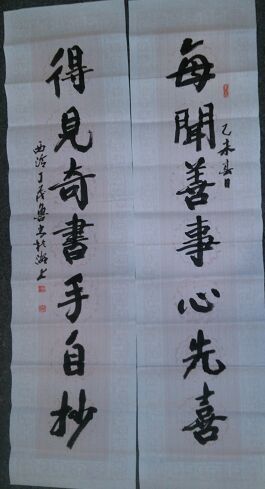 每聞善事心先喜
乙未春日
得見奇書手自抄
西泠丁茂魯書於湖上